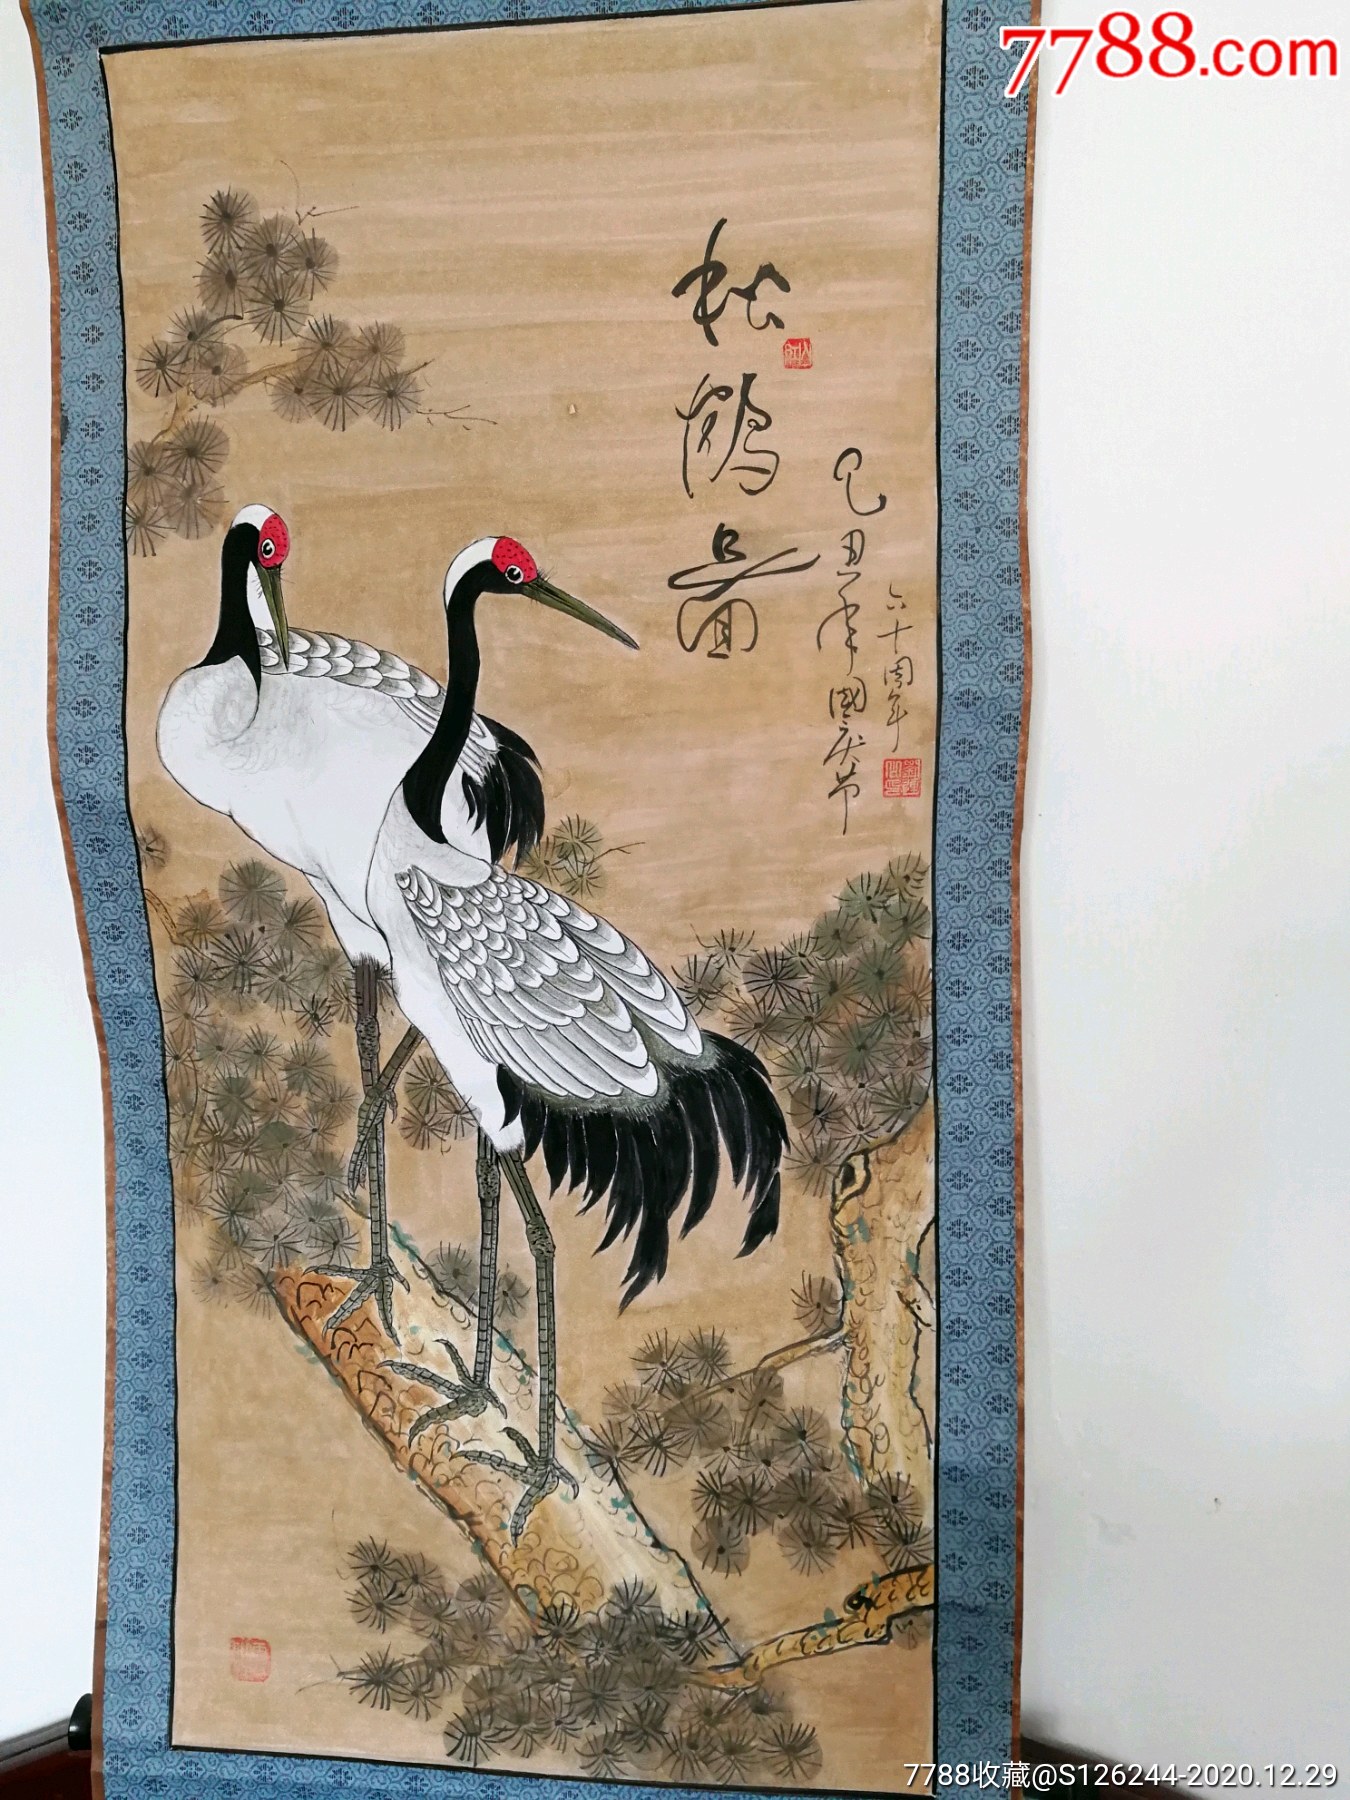 7788.com
松鹤图
己丑年國庆节
六十周年
7788收藏@S126244-2020.12.29